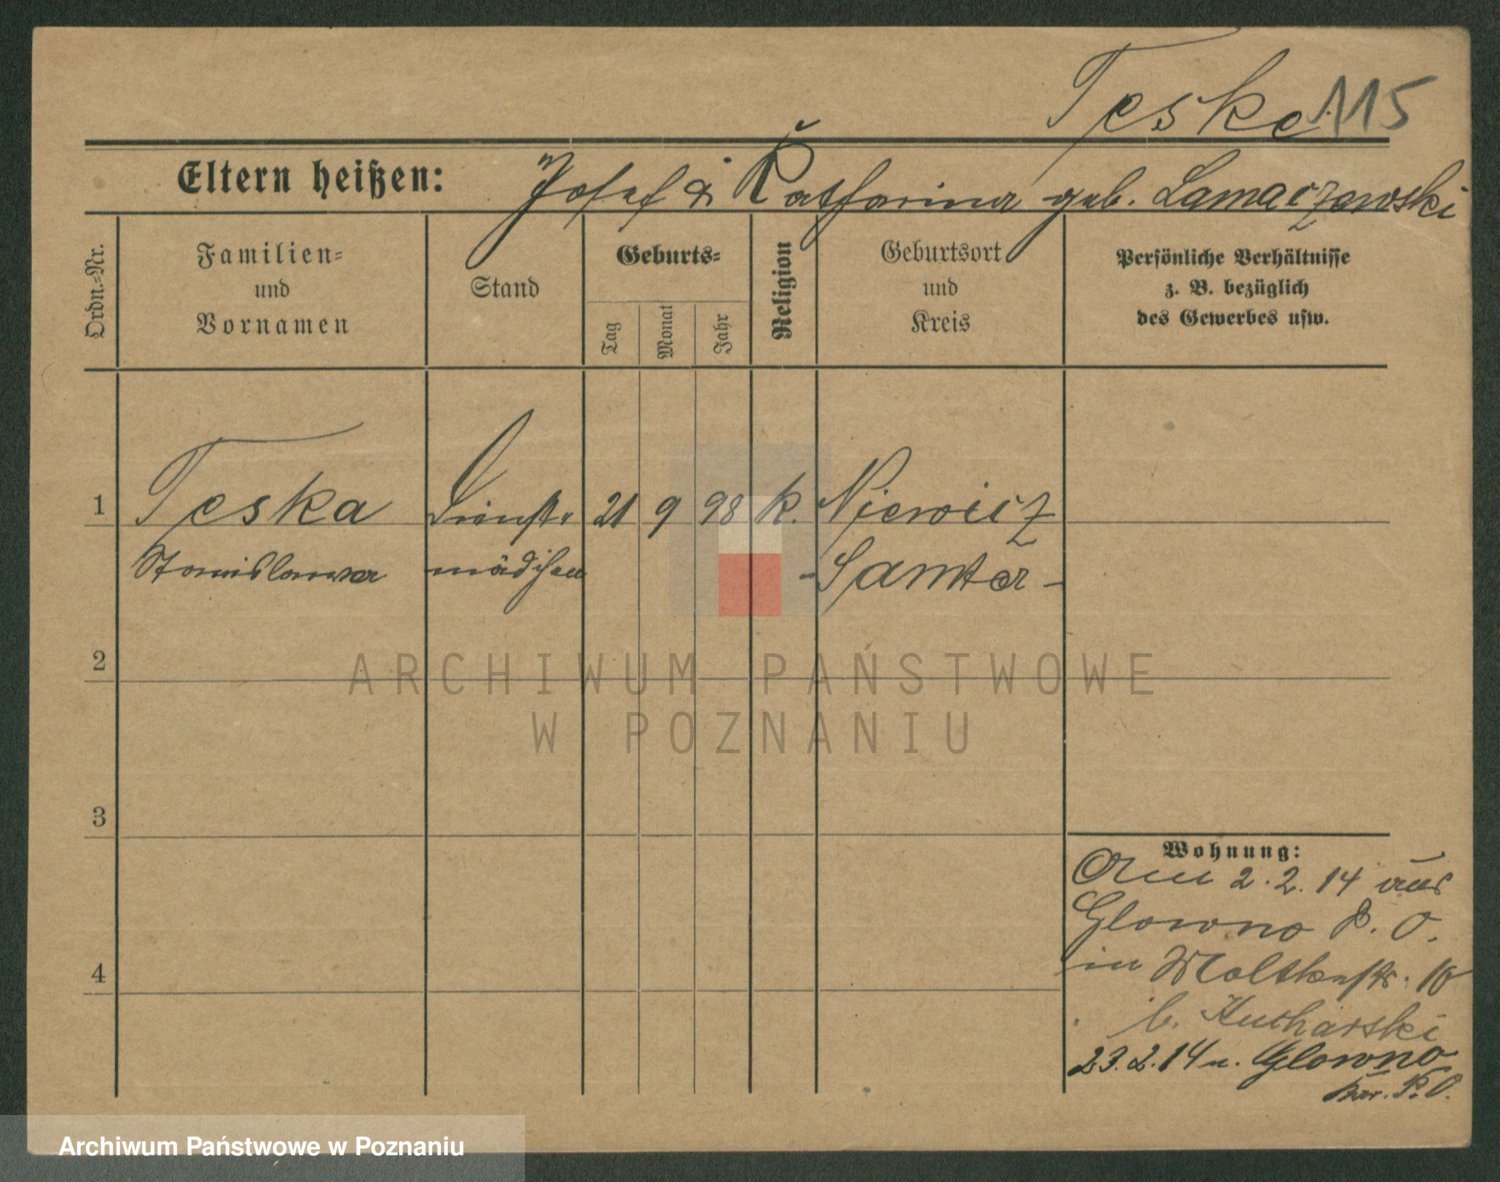 Teske 115
Eltern heißen: Josef & Katharina geb. Lamaczewski
Ordn.-Nr.
Familien-
und
Vornamen
Stand
Geburts-
Tag
Monat
Jahr
Religion
Geburtsort
und
Kreis
Persönliche Verhältnisse
z. B. bezüglich
des Gewerbes usw.
1 Teska Dienst- 21 9 98 k. Niewicz
Stanislawa mädchen Samter
2
3
4
ARCHIWUM PAŃSTWOWE
W POZNANIU
Wohnung:
2.2.14 aus
Glowno P. O.
in Moltkestr. 10
b. Kucharski
23.2.14 n. Glowno
Kr. P.O.
Archiwum Państwowe w Poznaniu